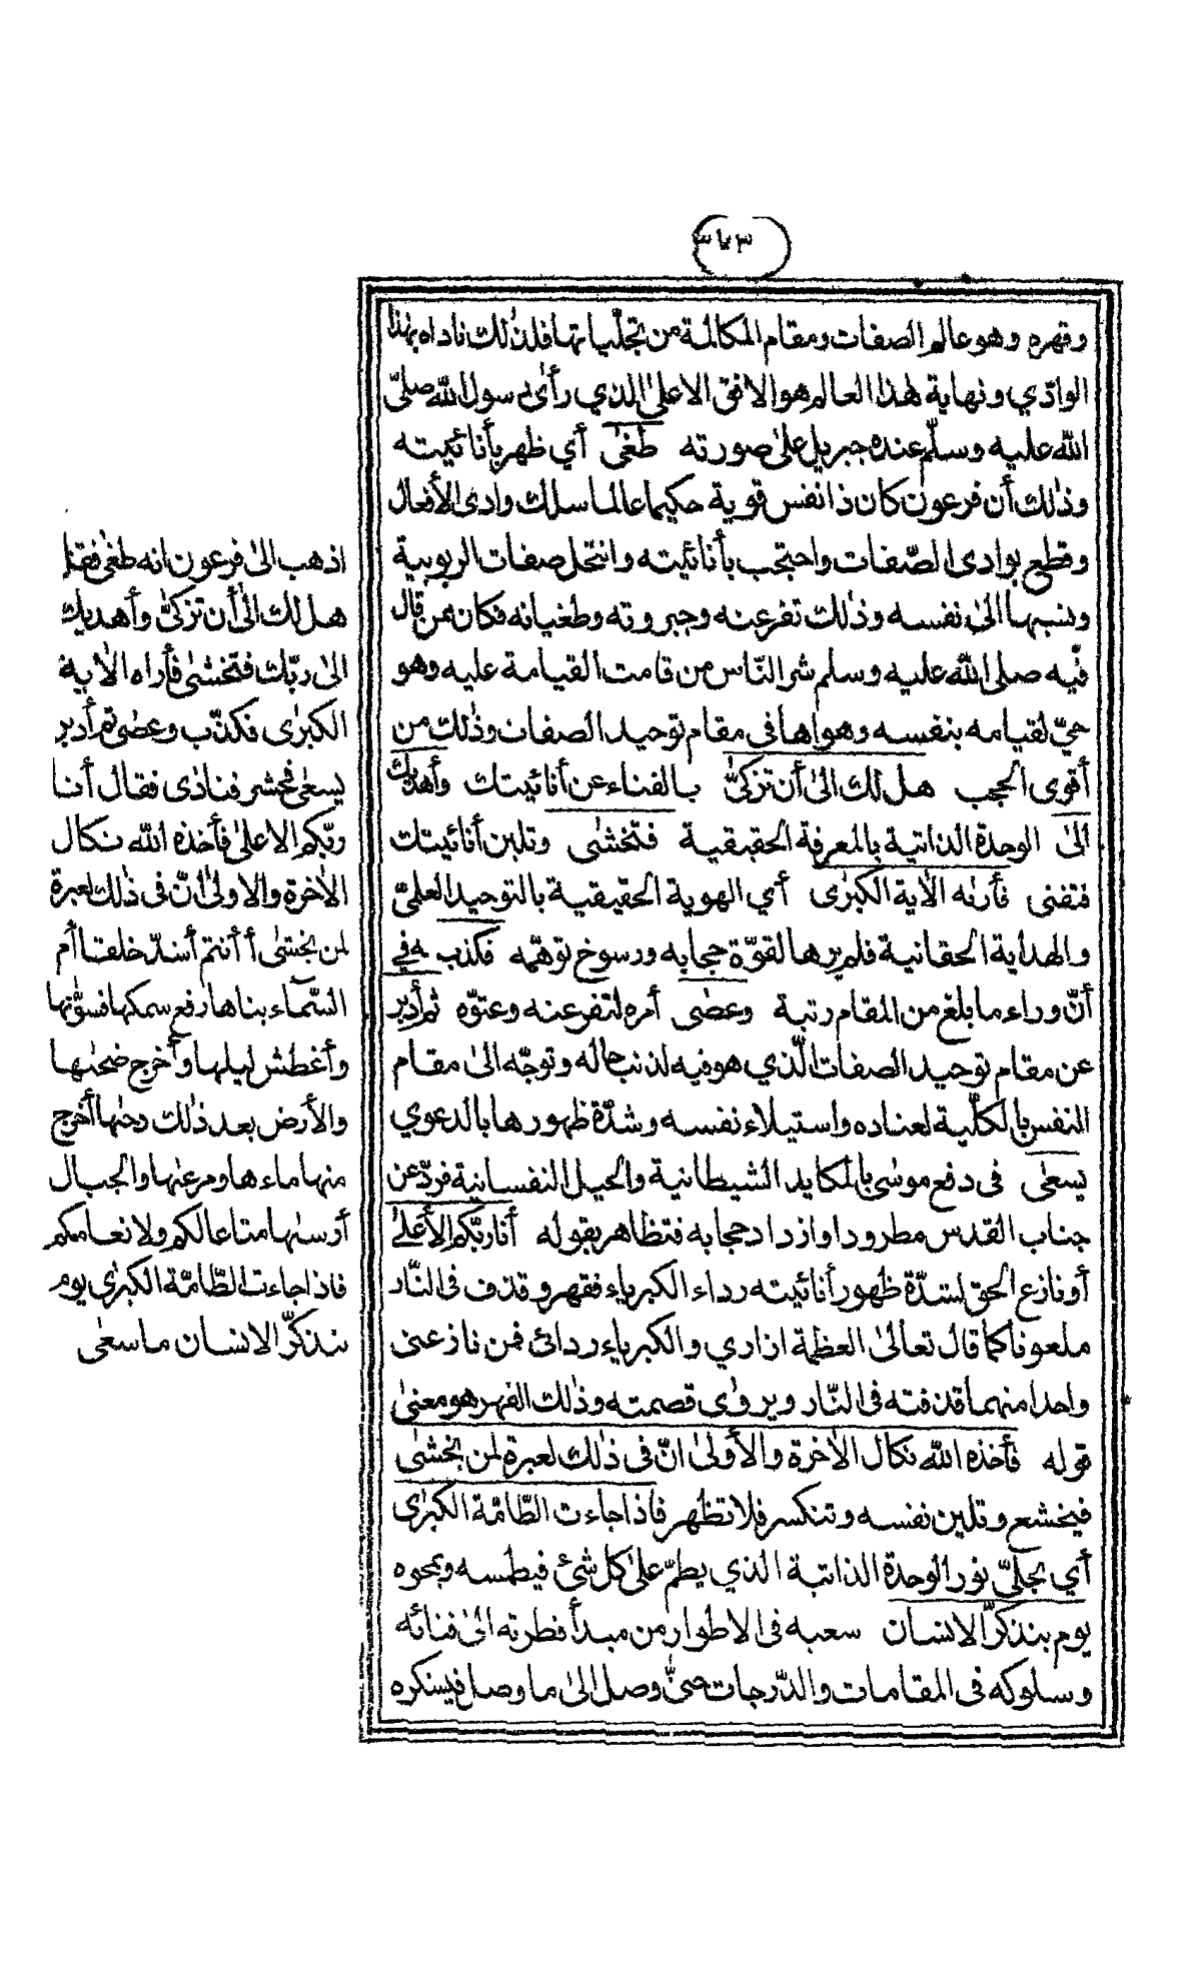 ٣٧٣
وقهره وهو عالم الصفات ومقام المكالمة من تجلّياتها فلذٰلك ناداه بهٰذا
الوادّي ونهاية هٰذا العالم هو الافق الاعلىٰ الذي رأىٰ رسول اللّٰه صلىّ
اللّٰه عليه وسلّم عنده جبريل علىٰ صورته طغىٰ أي ظهر بأنائيته
وذٰلك أن فرعون كان ذا نفس قوية حكيما عالما سلك وادى الأفعال
وقطع بوادى الصّفات واحتجب بأنائيته وانتحل صفات الربوبية
ونسبها الىٰ نفسه وذٰلك تفرعنه وجبروته وطغيانه فكان ممن قال
فّيه صلى اللّٰه عليه وسلم شر النّاس من قامت القيامة عليه وهو
حيّ لقيامه بنفسه وهواها فى مقام توحيد الصفات وذٰلك من
أقوى الحجب هل لك الىٰ أن تزكىّٰ بالفناء عن أنائيتك وأهديك
الىٰ الوحدة الذاتية بالمعرفة الحقيقية فتخشىٰ وتلين أنائيتك
فتفنى فأرىٰه الاٰية الكبرٰى أي الهوية الحقيقية بالتوحيد العلميّ
والهداية الحقانية فلم يرها لقوّة حجابه ورسوخ توهّمه فكذب فى
أنّ وراء ما بلغ من المقام رتبة وعصٰى أمره لتفرعنه وعتوّه ثم أدبر
عن مقام توحيد الصفات الّذي هو فيه لذنب حاله وتوجّه الىٰ مقام
النفس بالكلّية لعناده واستيلاء نفسه وشدّة ظهورها بالدعوي
يسعٰى فى دفع موسىٰ بالمكايد الشيطانية والحيل النفسانية فردّ عن
جناب القدس مطرودا وازداد حجابه فتظاهر بقوله أنا ربّكم الأعلىٰ
أو نازع الحق لشدّة ظهور أنائيته رداء الكبرياء فقهر وقذف فى النّار
ملعونا كما قال تعالىٰ العظمة ازاري والكبرياء ردائى فمن نازعنى
واحدا منهما قذفته فى النّار ويروٰى قصمته وذٰلك القهر هو معنىٰ
قوله فأخذه اللّٰه نكال الاٰخرة والأولىٰ انّ فى ذٰلك لعبرة لمن يخشىٰ
فيخشع وتلين نفسه وتنكسر فلا تظهر فاذا جاءت الطّامّة الكبرٰى
أي تجلىّ نور الوحدة الذاتية الذي يطمّ علىٰ كل شئ فيطمسه ويمحوه
يوم يتذكّر الانسان سعيه فى الاطوار من مبدأ فطرته الىٰ فنائه
وسلوكه فى المقامات والدّرجات حتىّٰ وصل الىٰ ما وصل فيشكره
اذهب الىٰ فرعون انه طغٰى فقل
هل لك الىٰ أن تزكىّٰ وأهديك
الىٰ ربّك فتخشىٰ فأراه الاٰية
الكبرٰى فكذّب وعصٰى ثم أدبر
يسعٰى فحشر فنادٰى فقال أنا
ربّكم الاعلىٰ فأخذه اللّٰه نكال
الاٰخرة والاولىٰ انّ فى ذٰلك لعبرة
لمن يخشىٰ أ أنتم أشدّ خلقا أم
السّمآء بناها رفع سمكها فسوّٰىها
وأغطش ليلها وأخرج ضحٰىها
والأرض بعد ذٰلك دحٰىها أخرج
منها ماءها ومرعٰىها والجبال
أرسٰىها متاعا لكم ولانعامكم
فاذا جاءت الطّامّة الكبرٰى يوم
يتذكّر الانسان ما سعٰى